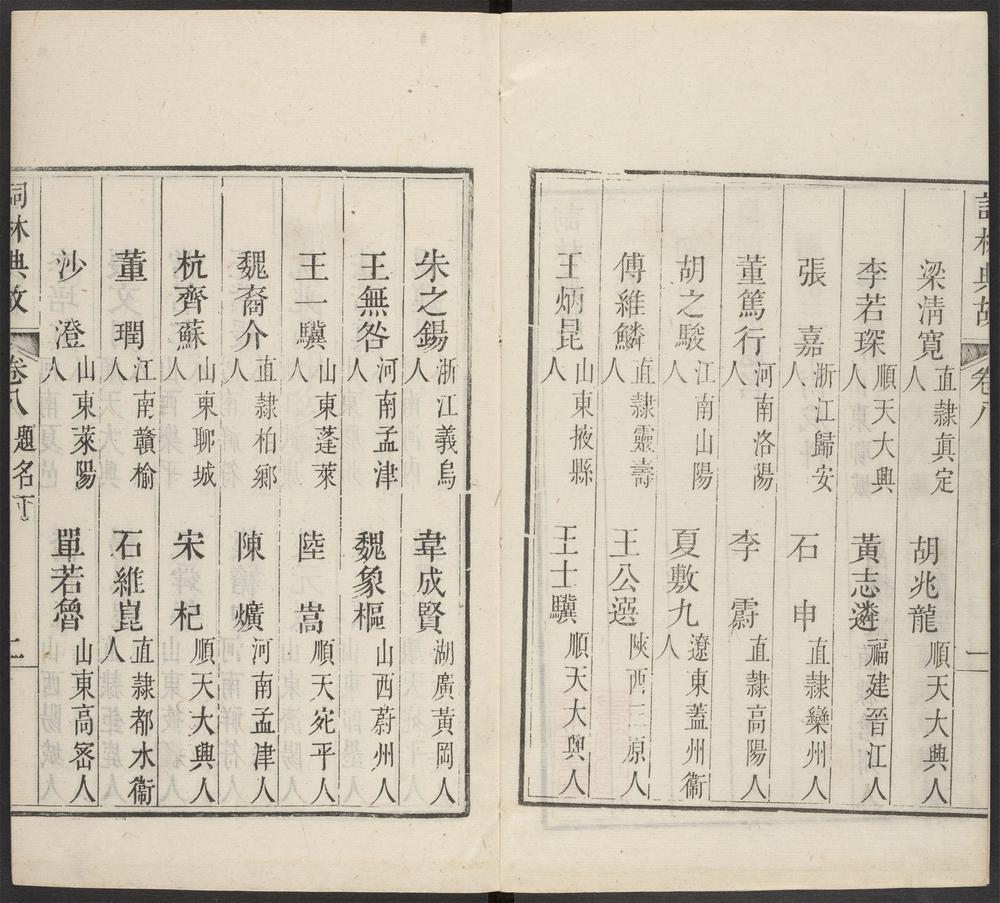 詞林典故 卷八 一
梁清寬 直隸真定人 胡兆龍 順天大興人
李若琛 順天大興人 黃志遴 福建晉江人
張嘉 浙江歸安人 石申 直隸欒州人
董篤行 河南洛陽人 李霨 直隸高陽人
胡之駿 江南山陽人 夏敷九 遼東蓋州衞人
傅維鱗 直隸靈壽人 王公選 陝西三原人
王炳昆 山東掖縣人 王士驥 順天大興人
朱之錫 浙江義烏人 韋成賢 湖廣黃岡人
王無咎 河南孟津人 魏象樞 山西蔚州人
王一驥 山東蓬萊人 陸嵩 順天宛平人
魏裔介 直隸柏鄉人 陳爌 河南孟津人
杭齊蘇 山東聊城人 宋杞 順天大興人
董理 江南贛榆人 石維崑 直隸都水衞人
沙澄 山東萊陽人 單若魯 山東高密人
詞林典故 卷八 題名 二